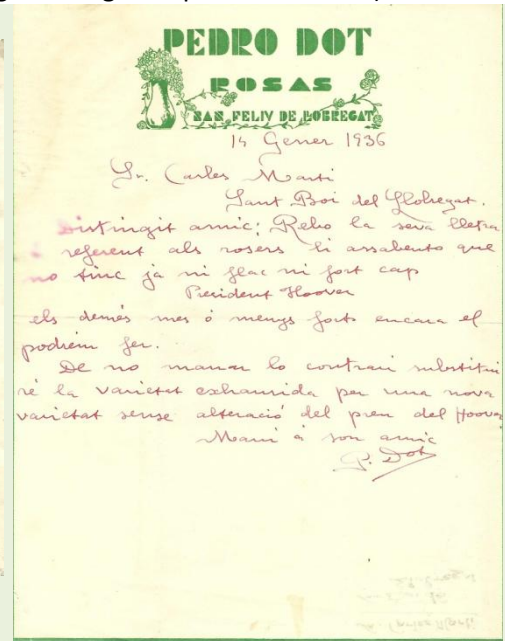 PEDRO DOT
ROSAS
SAN FELIV DE LLOBREGAT
14 Gener 1936
Sr. Carles Marti
Sant Boi del Llobregat.
Distingit amic: Rebo la seva lletra
i referent als rosers li assabento que
no tinc jà ni flac ni fort cap
President Hoover
els demés mes ó menys forts encara el
podrem fer.
De no manar lo contrari substitui
ré la varietat exhaurida per una nova
varietat sense alteració del preu del Hoover
Mani á son amic
P. Dot